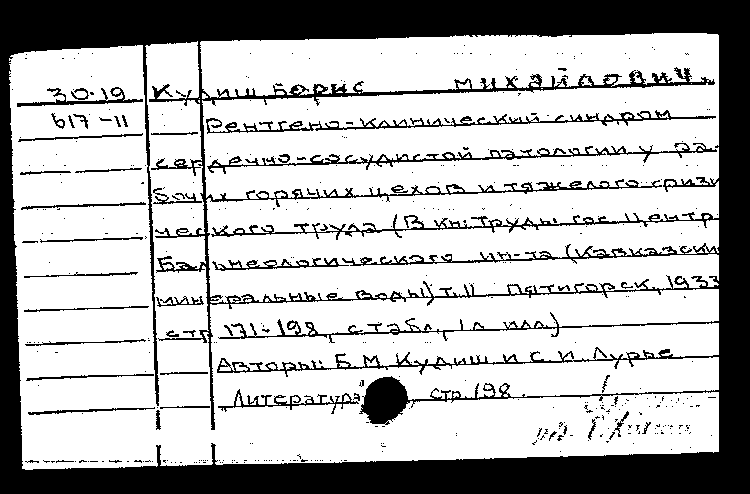 30.19 Кудиш, Борис Михайлович.
617-11 Рентгено-клинический синдром
сердечно-сосудистой патологии у ра-
бочих горячих цехов и тяжелого физи
ческого труда (В кн: Труды гос. Центр
Бальнеологического ин-та (Кавказски
минеральные воды) т. II Пятигорск, 1933
стр 171-198, с табл, 1 л илл)
Авторы: Б. М. Кудиш и С. И. Лурье
"Литература", стр. 198.